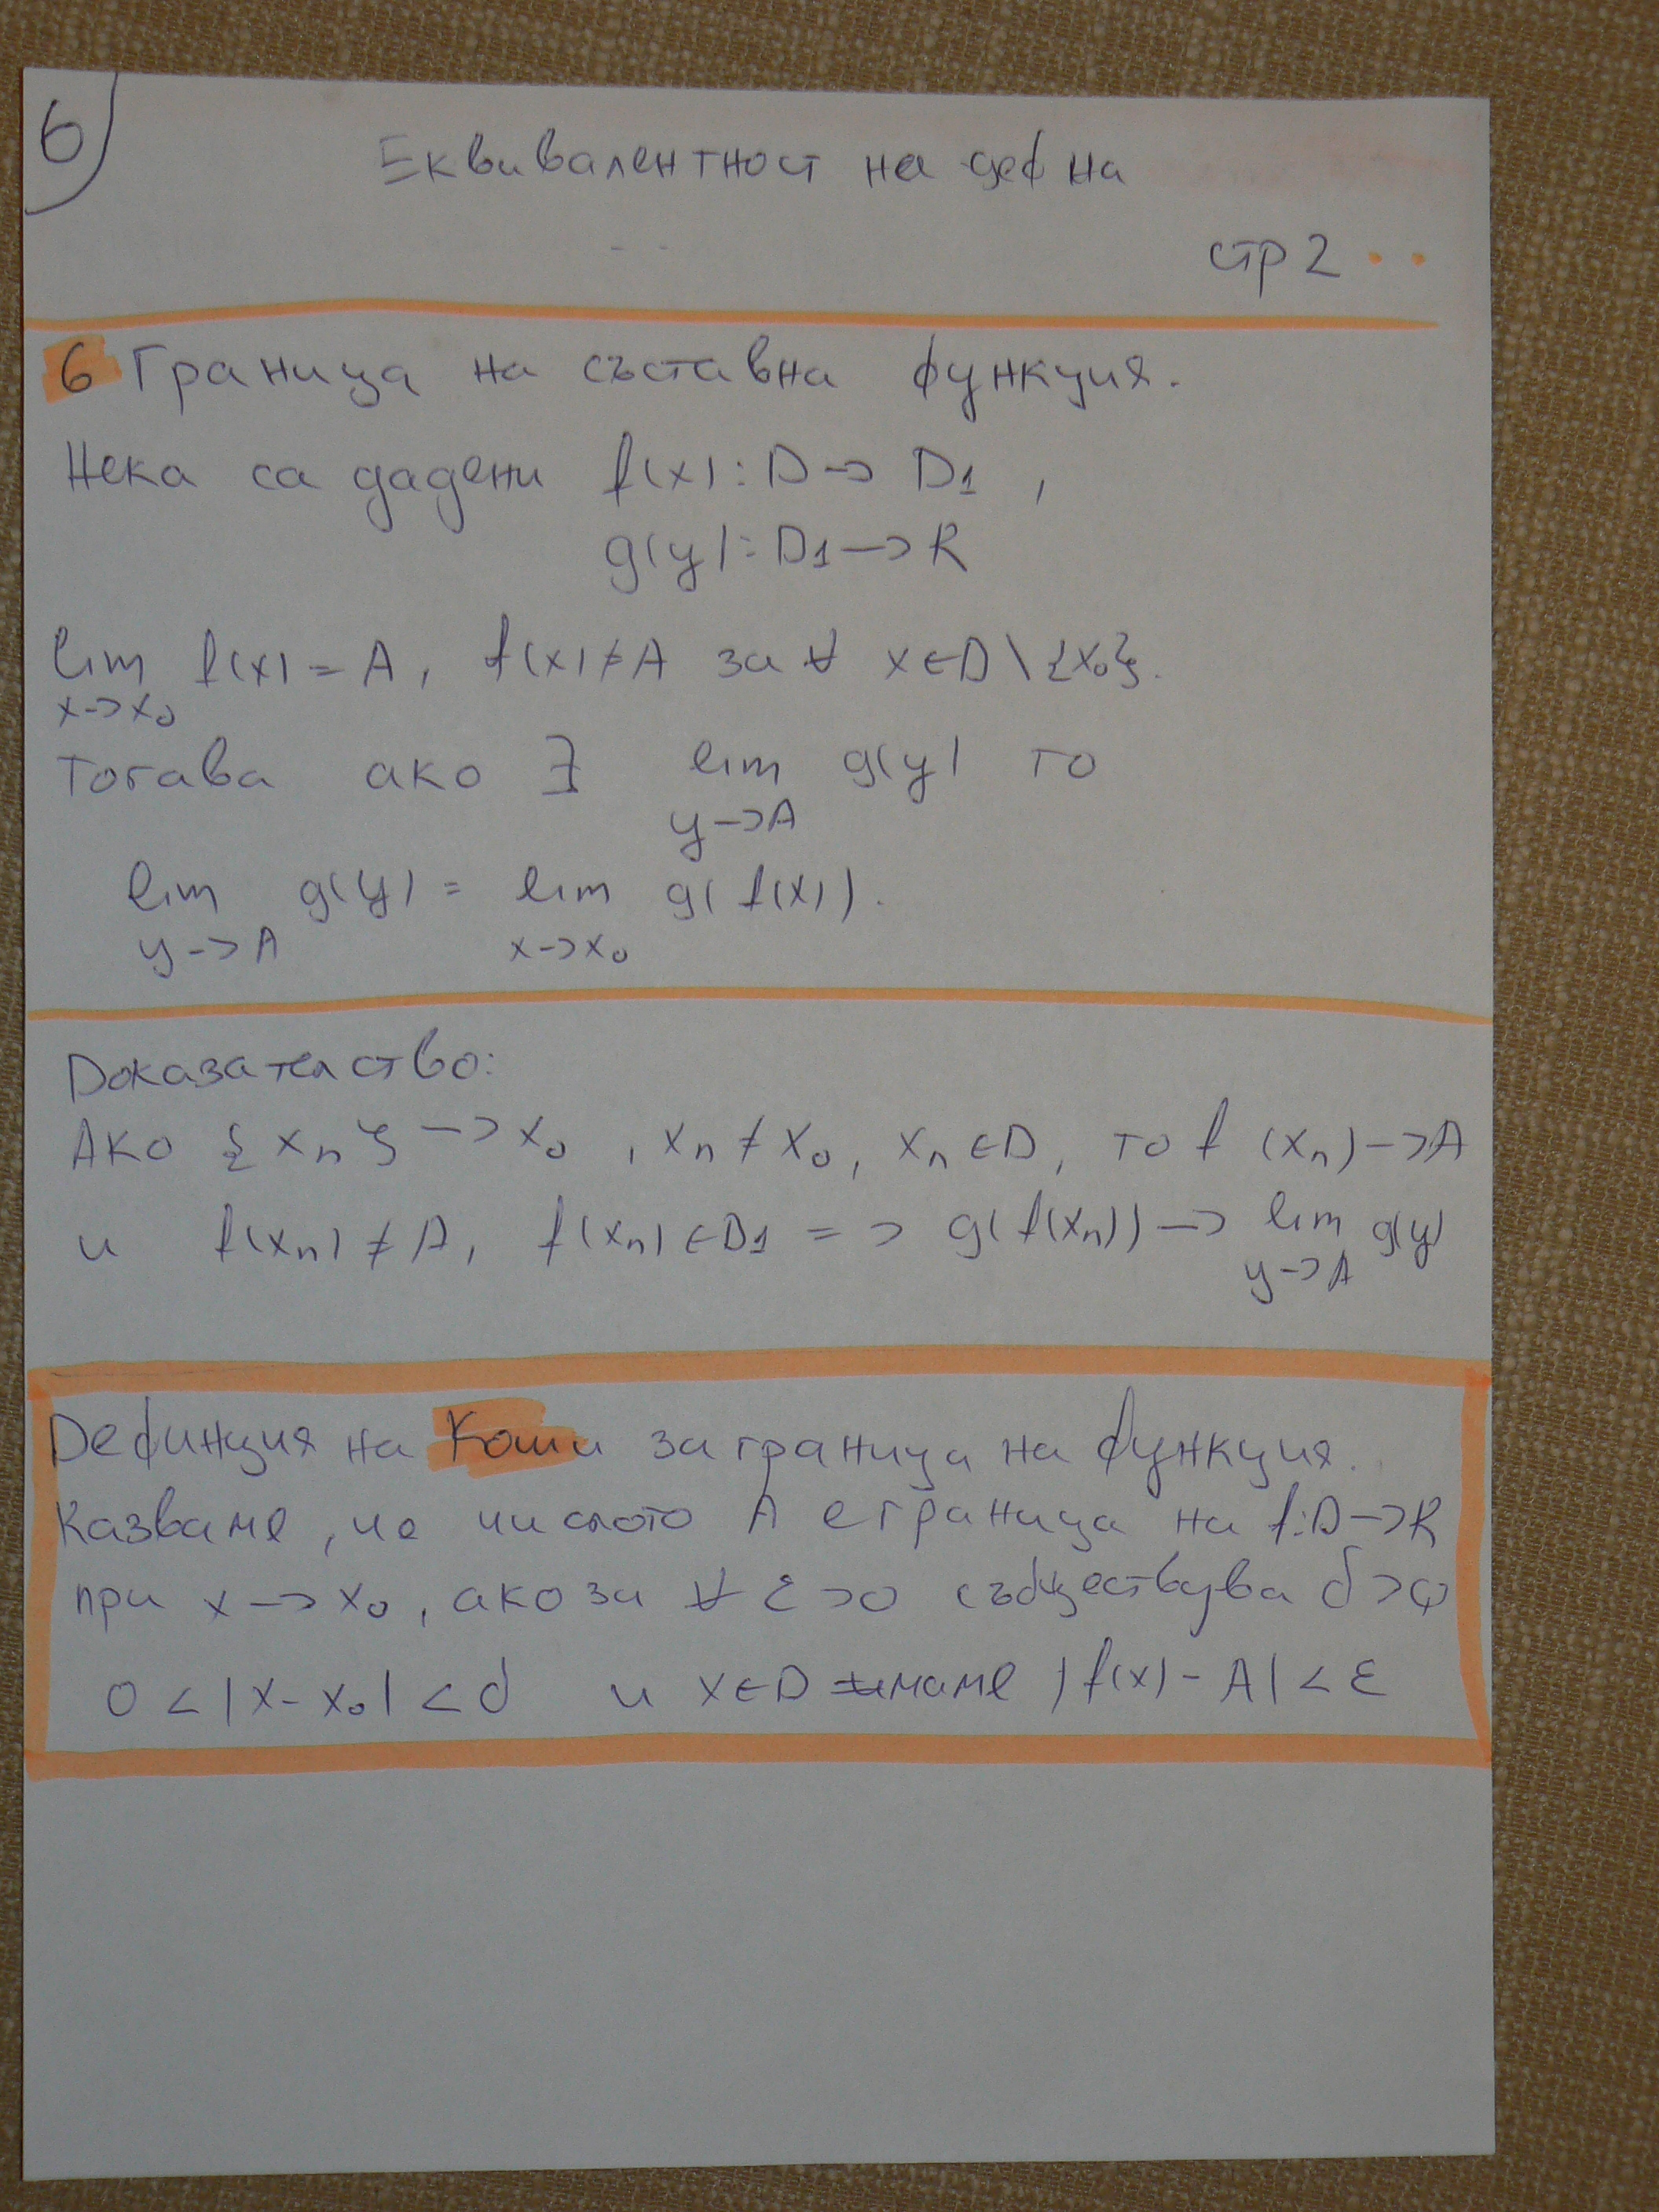 6)
Еквивалентност на деф на
стр 2
6 Граница на съставна функция.
Нека са дадени f(x): D -> D1 ,
g(y): D1 -> R
lim f(x) = A, f(x) ≠ A за ∀ x ∈ D \ {x₀}.
x->x₀
Тогава ако ∃ lim g(y) то
y->A
lim g(y) = lim g(f(x)).
y->A x->x₀
Доказателство:
Ако {xₙ} -> x₀ , xₙ ≠ x₀, xₙ ∈ D, то f (xₙ) -> A
и f(xₙ) ≠ A, f(xₙ) ∈ D1 => g(f(xₙ)) -> lim g(y)
y->A
Дефиниция на Коши за граница на функция.
Казваме, че числото A е граница на f: D -> R
при x -> x₀, ако за ∀ ε > 0 съществува δ > 0
0 < |x - x₀| < δ и x ∈ D имаме |f(x) - A| < ε